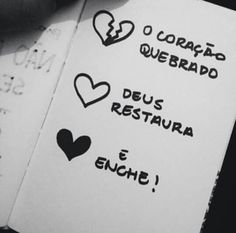 O CORAÇÃO
QUEBRADO
DEUS
RESTAURA
E
ENCHE!
NÃO
SE